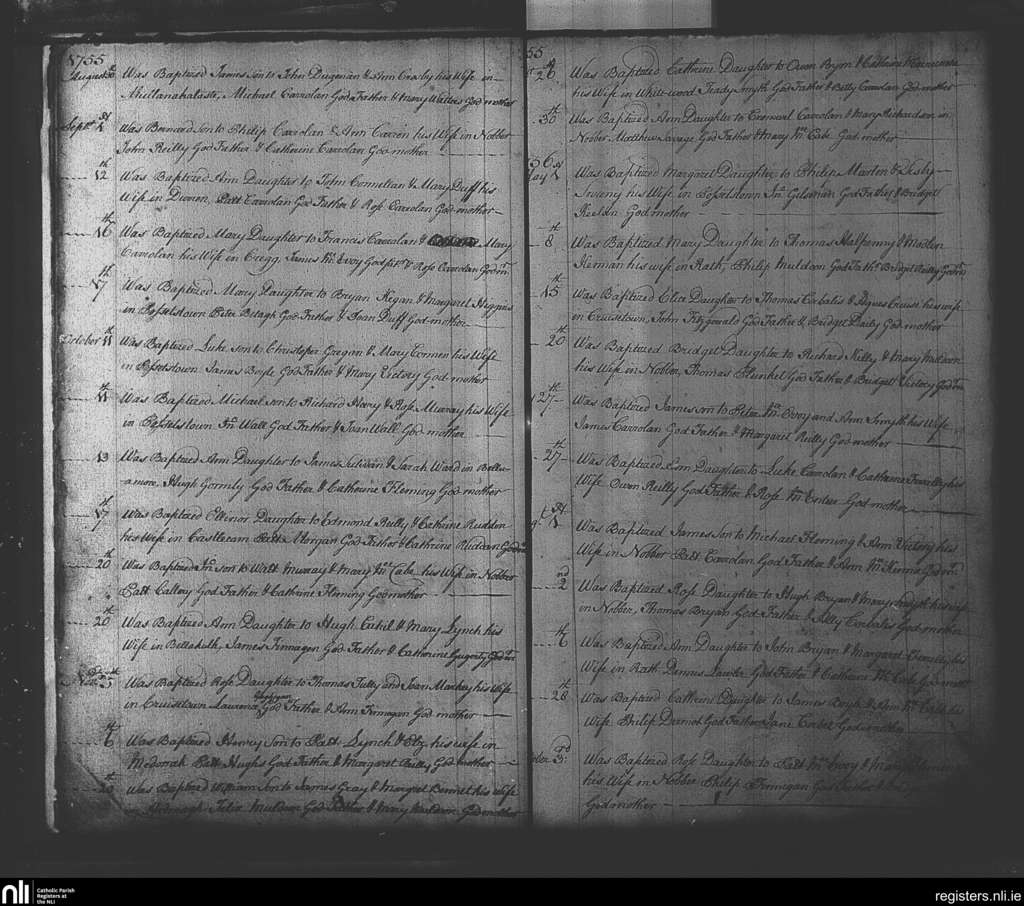 1755
August 30 Was Baptized James son to John Dugenan & Ann Crosby his Wife in
Michael Carrolan God Father & Mary Watters God mother
Sept. 1st Was Bernard Son to Philip Carrolan & Ann Carren his Wife in Nobber
John Reilly God Father & Catherine Carrolan God mother
12th Was Baptized Ann Daughter to John Connellan & Mary Duff his
Wife in Patt Carrolan God Father & Rose Carrolan God mother
16th Was Baptized Mary Daughter to Francis Carrolan & Mary
Carrolan his Wife in Cregg. James Mc Evoy Godfr & Rose Carrolan Godmr
17th Was Baptized Mary Daughter to Bryan Kegan & Margret Higgins
in Posselstown Peter Betagh God Father & Joan Duff God mother
October 11th Was Baptized Luke son to Christopher Gregan & Mary Connen his Wife
in Posselstown James Boyle God Father & Mary Victory God mother
11th Was Baptized Michael son to Richard Heery & Rose Murray his Wife
in Posselstown Jn Wall God Father & Joan Wall God mother
13 Was Baptized Ann Daughter to James Sulivan & Sarah Ward in Bella-
amore. Hugh Gormly God Father & Catherine Fleming God mother
17th Was Baptized Ellenor Daughter to Edmond Reilly & Cathrine Rudden
his Wife in Castlecam Patt Morgan God Father & Cathrine
20th Was Baptized Jn son to Watt Murray & Mary Mc Cabe his Wife in Nobber
Patt Callary God Father & Cathrine Fleming God mother
20th Was Baptized Ann Daughter to Hugh Cahil & Mary Lynch his
Wife in James Finnagan God Father & Catherine
Was Baptized Rose Daughter to Thomas Tully and Joan Markey his Wife
in Cruisetown Laurence God Father & Ann Finnegan God mother
6th Was Baptized Henry Son to Patt Lynch & Eliz his wife in
Patt Hughs God Father & Margaret Reilly God mother
20 Was Baptized William Son to James Gray & Margret Bennet his Wife
Felix Muldoon God Father & Mary Muldoon God mother
55
26th Was Baptized Cathrine Daughter to Owen Byrn & Catherine
his Wife in Whitewood Teady Smyth God Father & Betty Carrolan God mother
30th Was Baptized Ann Daughter to Carrolan & Mary Richardson in
Nobber Matthew Savage God Father & Mary Mc Cabe God mother
56
1st Was Baptized Margaret Daughter to Philip Marten &
his Wife in Posselstown Jn God Father & Bridget
God mother
8th Was Baptized Mary Daughter to Thomas Halfpenny & Madlen
Kernan his wife in Rath, Philip Muldoon God Fathr Bridget Reilly Godmr
15th Was Baptized Elice Daughter to Thomas Corbales & Agnes Cruise his wife
in Cruisetown, John Fitzgerald God Father & Bridget Daily God mother
20th Was Baptized Bridget Daughter to Richard Killy & Mary Muldoon
his Wife in Nobber, Thomas Plunket God Father & Bridgett Victory Godmr
27th Was Baptized James son to Peter Mc Evoy and Ann Smyth his Wife
James Carrolan God Father & Margaret Reilly God mother
27th Was Baptized Daughter to Luke Carrolan & Catharine his
Wife Owen Reilly God Father & Rose Mc Entee God mother
1st Was Baptized James Son to Michael Fleming & Ann Victory his
Wife in Nobber Patt Carrolan God Father & Ann Mc Kenna Godmr
2nd Was Baptized Rose Daughter to Hugh Bryan & Mary his wife
in Nobber, Thomas Bryan God Father & Corbales God mother
6th Was Baptized Ann Daughter to John Bryan & Margaret his
Wife in Rath Dennis Lawler God Father & Catherine Mc Cabe God mother
28th Was Baptized Cathern Daughter to James Boyle & Ann Mc Cabe his
Wife Philip Dermot God Father Jane God mother
3rd Was Baptized Rose Daughter to Patt Mc Evoy & Mary
his Wife in Nobber Philip Finnegan God Father &
God mother
nli
Catholic Parish
Registers at
the NLI
registers.nli.ie